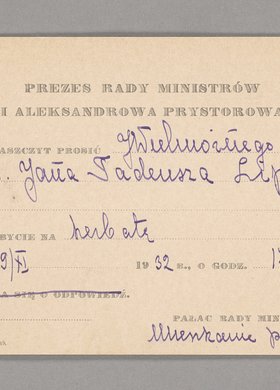 PREZES RADY MINISTRÓW
I ALEKSANDROWA PRYSTOROWA
ASZCZYT PROSIĆ JWielmożnego
Jana Tadeusza Lip
BYCIE NA herbatę
9/XI 1932 R., O GODZ. 1
A SIĘ O ODPOWIEDŹ.
PAŁAC RADY MIN
Mieszkanie p